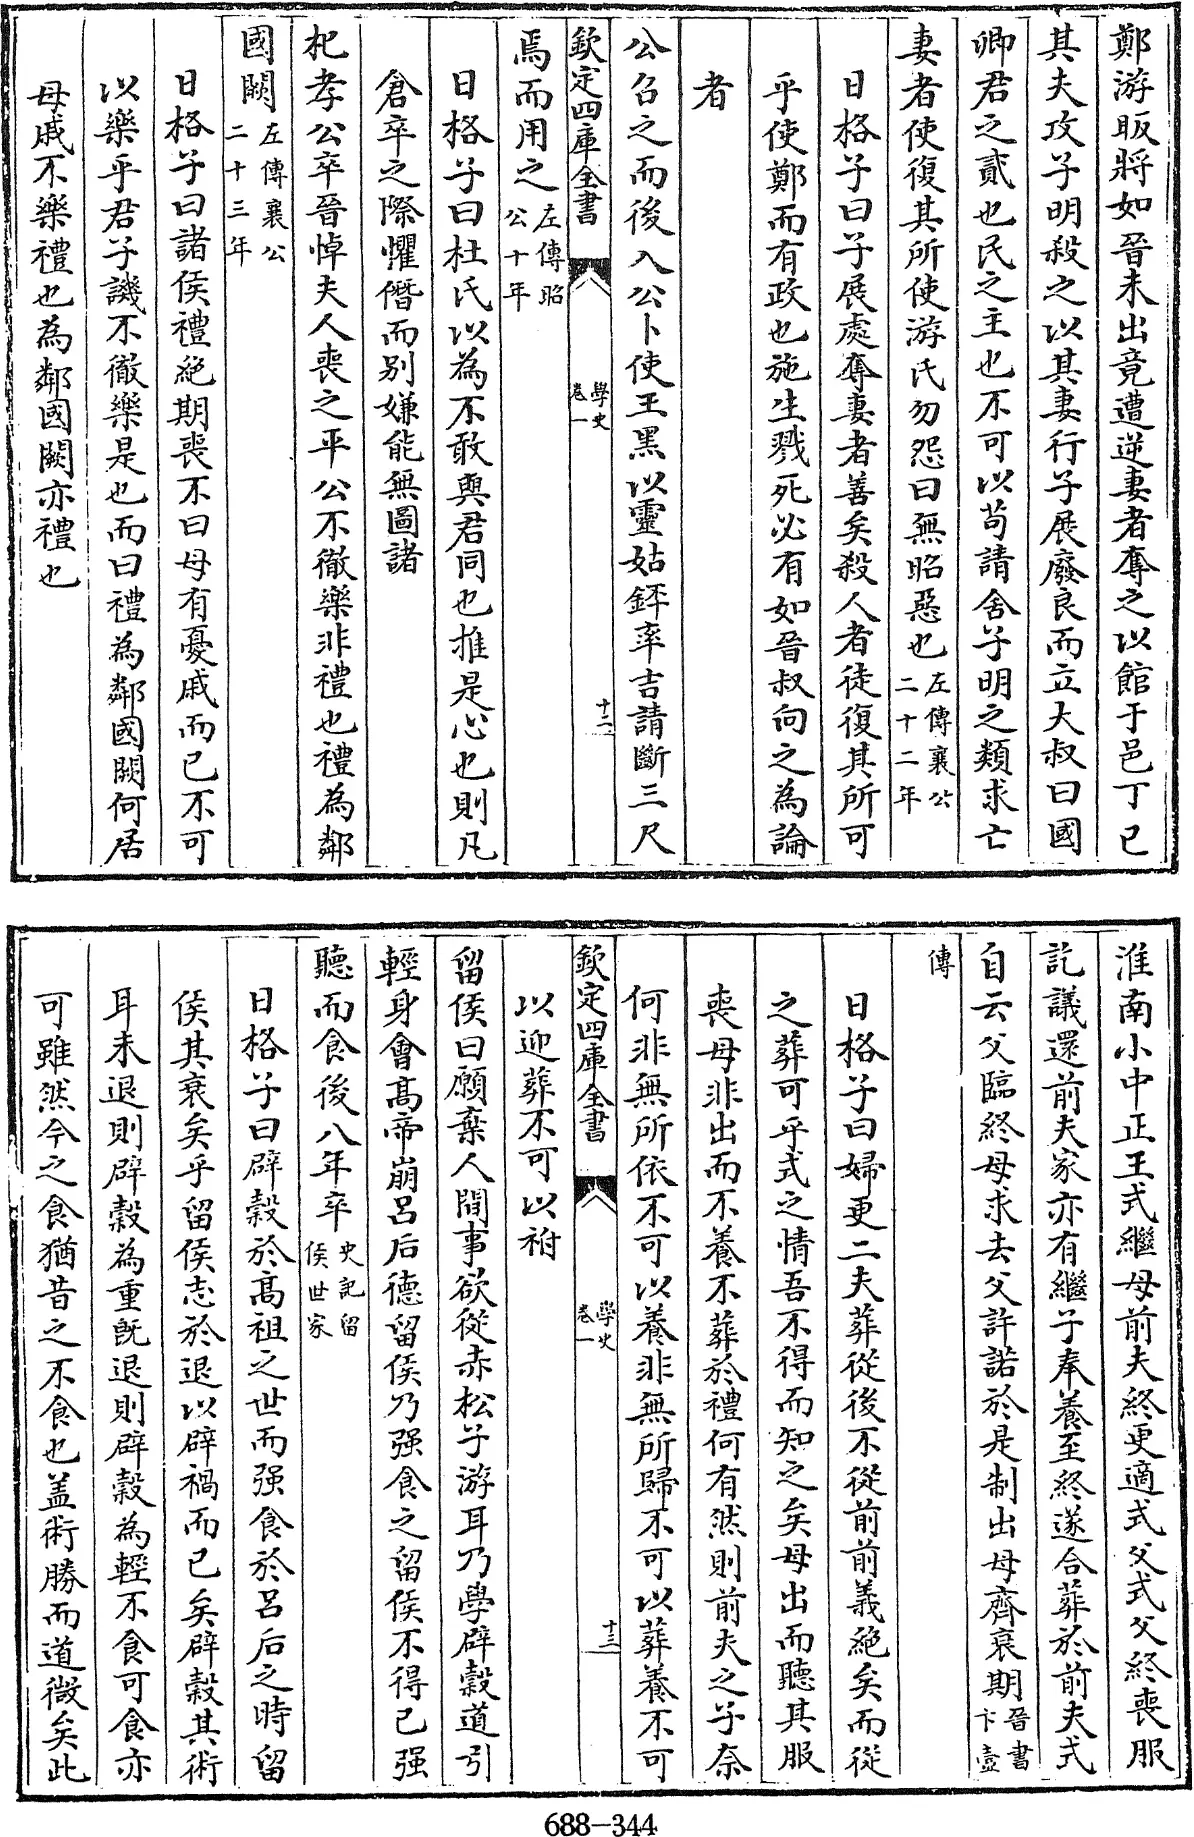 鄭游昄將如晉未出竟遭逆妻者奪之以館于邑丁巳
其夫攻子明殺之以其妻行子展廢良而立大叔曰國
卿君之貳也民之主也不可以苟請舍子明之類求亡
妻者使復其所使游氏勿怨曰無昭惡也左傳襄公二十二年
日格子曰子展處奪妻者善矣殺人者徒復其所可
乎使鄭而有政也施生戮死必有如晉叔向之為論
者
公召之而後入公卜使王黑以靈姑銔率吉請斷三尺
欽定四庫全書
學史
卷一
十二
焉而用之左傳昭公十年
日格子曰杜氏以為不敢與君同也推是心也則凡
倉卒之際懼僭而别嫌能無圖諸
杞孝公卒晉悼夫人喪之平公不徹樂非禮也禮為鄰
國闕左傳襄公二十三年
日格子曰諸侯禮絶期喪不曰母有憂戚而已不可
以樂乎君子譏不徹樂是也而曰禮為鄰國闕何居
母戚不樂禮也為鄰國闕亦禮也
淮南小中正王式繼母前夫終更適式父式父終喪服
訖議還前夫家亦有繼子奉養至終遂合葬於前夫式
自云父臨終母求去父許諾於是制出母齊衰期晉書卞壼
傳
日格子曰婦更二夫葬從後不從前前義絶矣而從
之葬可乎式之情吾不得而知之矣母出而聽其服
喪母非出而不養不葬於禮何有然則前夫之子奈
何非無所依不可以養非無所歸不可以葬養不可
欽定四庫全書
學史
卷一
十三
以迎葬不可以祔
留侯曰願棄人間事欲從赤松子游耳乃學辟穀道引
輕身會髙帝崩呂后德留侯乃强食之留侯不得已强
聽而食後八年卒史記留侯世家
日格子曰辟穀於髙祖之世而强食於呂后之時留
侯其衰矣乎留侯志於退以辟禍而已矣辟穀其術
耳未退則辟穀為重旣退則辟穀為輕不食可食亦
可雖然今之食猶昔之不食也盖術勝而道微矣此
688-344